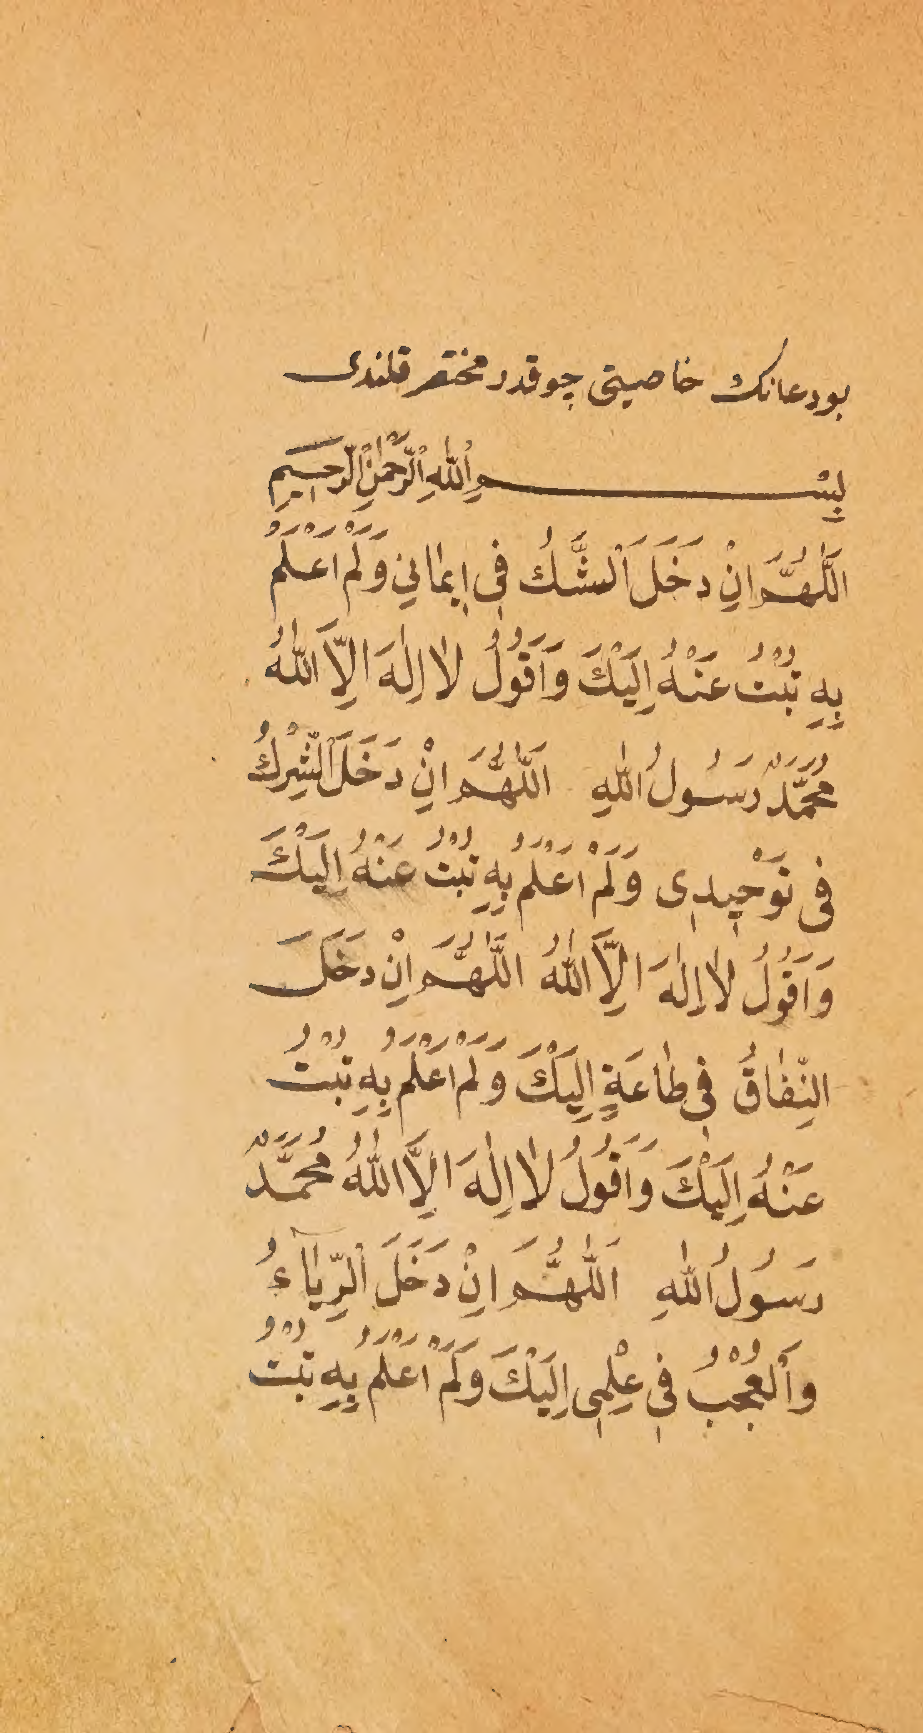 بو دعانك خاصيتى چوقدر مختصر قلندى
بِسْمِ اللّٰهِ الرَّحْمٰنِ الرَّحِيمِ
اَللّٰهُمَّ اِنْ دَخَلَ الشَّكُ فِى اِيمَانِي وَلَمْ اَعْلَمْ
بِهِ تُبْتُ عَنْهُ اِلَيْكَ وَاَقُولُ لَا اِلٰهَ اِلَّا اللّٰهُ
مُحَمَّدٌ رَسُولُ اللّٰهِ اَللّٰهُمَّ اِنْ دَخَلَ الشِّرْكُ
فِى تَوْحِيدِى وَلَمْ اَعْلَمْ بِهِ تُبْتُ عَنْهُ اِلَيْكَ
وَاَقُولُ لَا اِلٰهَ اِلَّا اللّٰهُ اَللّٰهُمَّ اِنْ دَخَلَ
النِّفَاقُ فِى طَاعَةٍ اِلَيْكَ وَلَمْ اَعْلَمْ بِهِ تُبْتُ
عَنْهُ اِلَيْكَ وَاَقُولُ لَا اِلٰهَ اِلَّا اللّٰهُ مُحَمَّدٌ
رَسُولُ اللّٰهِ اَللّٰهُمَّ اِنْ دَخَلَ الرِّيَآءُ
وَالْعُجْبُ فِى عِلْمِى اِلَيْكَ وَلَمْ اَعْلَمْ بِهِ تُبْتُ